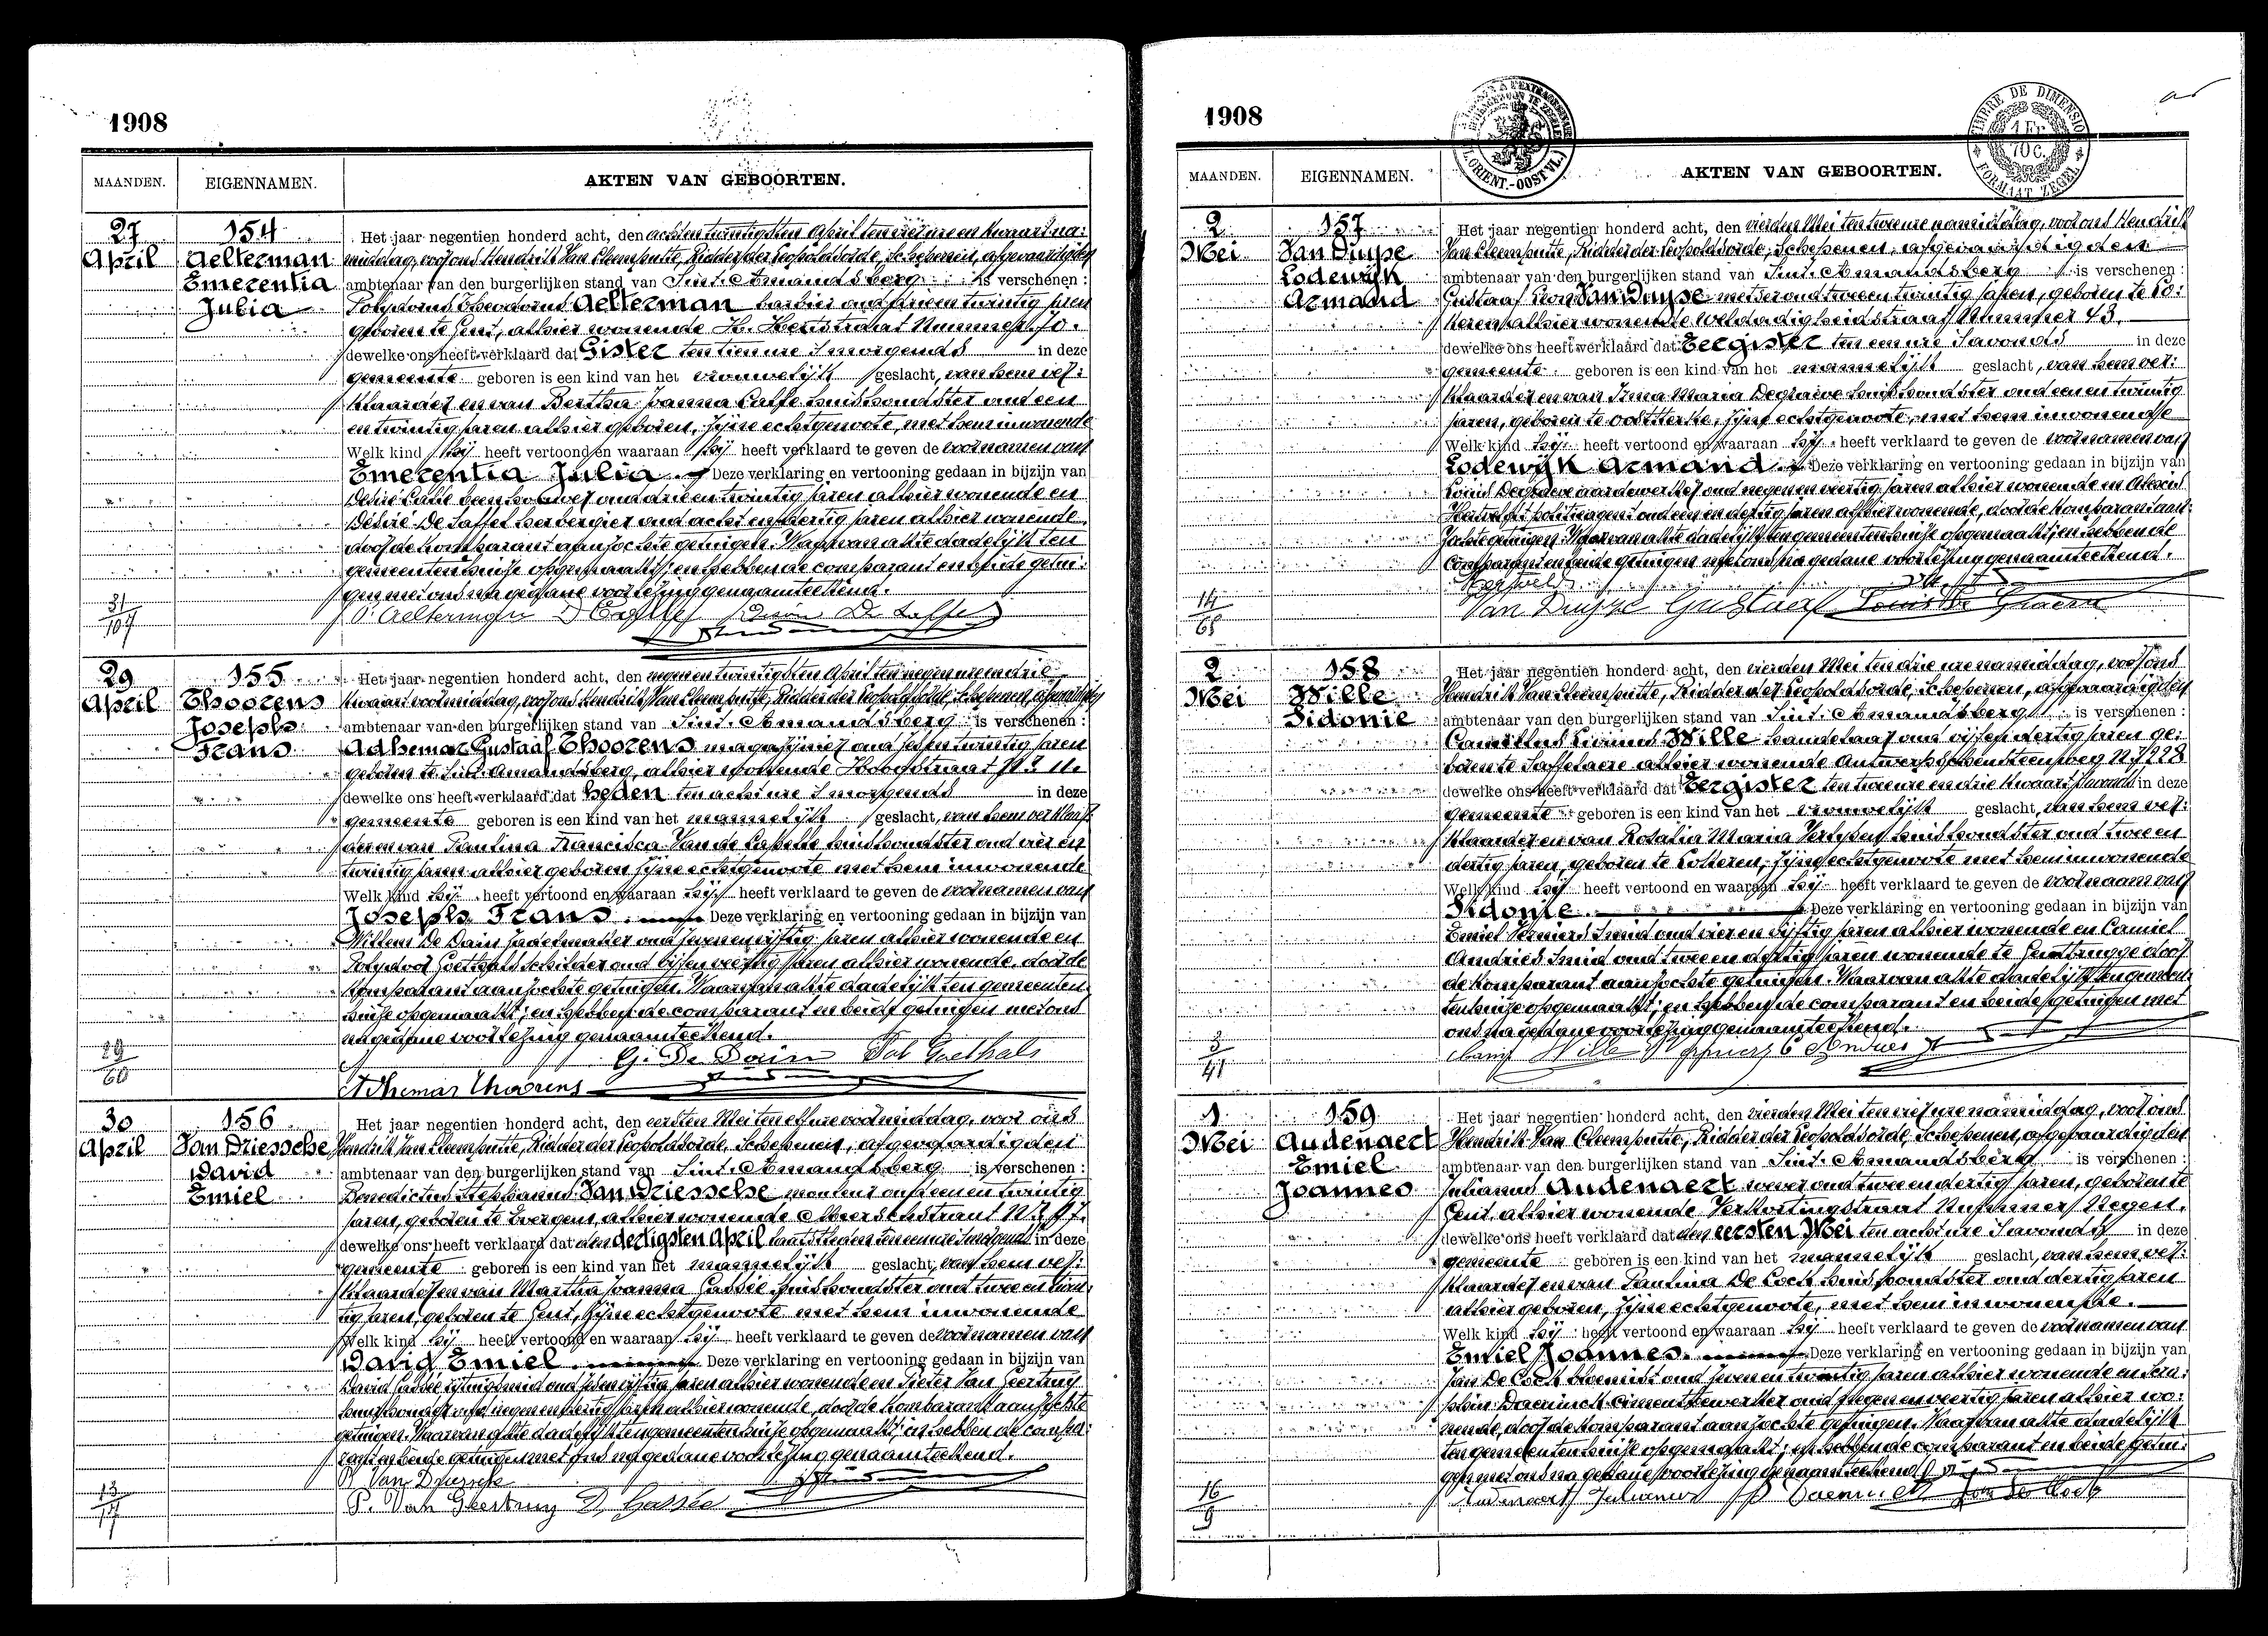 1908
MAANDEN. EIGENNAMEN. AKTEN VAN GEBOORTEN.
27 April
154
Aelterman
Emerentia
Julia
Het jaar negentien honderd acht, den achten twintigsten April ten vier ure en kwart na:
middag, voor ons Hendrik Van Cleemputte, Ridder der Leopoldsorde, Schepenen, afgevaardigden
ambtenaar van den burgerlijken stand van Sint-Amandsberg is verschenen:
Polydorus Theodorus Aelterman barbier oud en twintig jaren
geboren te Gent, alhier wonende H. Hertstraat Nummer 70.
dewelke ons heeft verklaard dat Gister ten tien ure 's morgends in deze
gemeente geboren is een kind van het vrouwelijk geslacht, van hem ver:
klaarder en van Bertha Joanna huishoudster oud een
en twintig jaren alhier geboren, zijne echtgenoote, met hem inwonende
Welk kind hij heeft vertoond en waaraan hij heeft verklaard te geven de voornamen van
Emerentia Julia Deze verklaring en vertooning gedaan in bijzijn van
Desiré oud drie en twintig jaren alhier wonende en
Désiré De Laffel herbergier oud acht en dertig jaren alhier wonende
door de komparant aanzochte getuigen. Waarvan akte dadelijk ten
gemeentenhuize opgemaakt; en hebben de comparant en beide getui:
gen met ons na gedane voorlezing genaamteekend.
P. Aelterman
31
107
29 April
155
Thoorens
Joseph
Frans
Het jaar negentien honderd acht, den negen en twintigsten April ten negen ure en drie
kwaart voormiddag, voor ons Hendrik Van Cleemputte, Ridder der Leopoldsorde, Schepenen, afgevaardigden
ambtenaar van den burgerlijken stand van Sint-Amandsberg is verschenen:
Adhemar Gustaaf Thoorens magazijnier oud zes en twintig jaren
geboren te Sint-Amandsberg, alhier wonende Hoogstraat N° 11.
dewelke ons heeft verklaard dat heden ten acht ure 's morgends in deze
gemeente geboren is een kind van het mannelijk geslacht, van hem verklaar:
der en van Paulina Francisca Van de Capelle huishoudster oud vier en
twintig jaren alhier geboren zijne echtgenoote met hem inwonende
Welk kind hij heeft vertoond en waaraan hij heeft verklaard te geven de voornamen van
Joseph Frans. Deze verklaring en vertooning gedaan in bijzijn van
De Dain zadelmaker oud zeven en vijftig jaren alhier wonende en
Polydoor Goethals schilder oud vijf en veertig jaren alhier wonende, door de
komparant aanzochte getuigen. Waarvan akte dadelijk ten gemeenten:
huize opgemaakt; en hebben de comparant en beide getuigen met ons
na gedane voorlezing genaamteekend.
G. De Dain Pol Goethals
Adhemar Thoorens
29
60
30 April
156
Van Driessche
David
Emiel
Het jaar negentien honderd acht, den eersten Mei ten elf ure voormiddag, voor ons
Hendrik Van Cleemputte, Ridder der Leopoldsorde, Schepenen, afgevaardigden
ambtenaar van den burgerlijken stand van Sint-Amandsberg is verschenen:
Benedictus Stephanus Van Driessche mouleur oud een en twintig
jaren, geboren te Evergem, alhier wonende
dewelke ons heeft verklaard dat den dertigsten April laatstleden ten eenure in deze
gemeente geboren is een kind van het mannelijk geslacht, van hem ver:
klaarder en van Martha Joanna Gassée huishoudster oud twee en twin:
tig jaren, geboren te Gent, zijne echtgenoote met hem inwonende
Welk kind hij heeft vertoond en waaraan hij heeft verklaard te geven de voornamen van
David Emiel. Deze verklaring en vertooning gedaan in bijzijn van
David Gassée jaren alhier wonende en Pieter Van Geertruy
jaren alhier wonende, door de komparant aanzochte
getuigen. Waarvan akte dadelijk ten gemeentenhuize opgemaakt; en hebben de compa:
rant en beide getuigen met ons na gedane voorlezing genaamteekend.
B. Van Driessche
P. Van Geertruy D. Gassée
13
17
1908
TIMBRE DE DIMENSION
1 Fr.
10 C.
FORMAAT ZEGEL
MAANDEN. EIGENNAMEN. AKTEN VAN GEBOORTEN.
2 Mei
157
Van Duyse
Lodewyk
Armand
Het jaar negentien honderd acht, den vierden Mei ten twee ure namiddag, voor ons Hendrik
Van Cleemputte, Ridder der Leopoldsorde, Schepenen, afgevaardigden
ambtenaar van den burgerlijken stand van Sint-Amandsberg is verschenen:
Gustaaf Leon Van Duyse metser oud twee en twintig jaren, geboren te Lo:
keren alhier wonende Weldadigheidstraat Nummer 43.
dewelke ons heeft verklaard dat Eergister ten een ure 's avonds in deze
gemeente geboren is een kind van het mannelijk geslacht, van hem ver:
klaarder en van Irma Maria Degraeve huishoudster oud een en twintig
jaren, geboren te Oostkerke, zijne echtgenoote, met hem inwonende
Welk kind hij heeft vertoond en waaraan hij heeft verklaard te geven de voornamen van
Lodewyk Armand. Deze verklaring en vertooning gedaan in bijzijn van
Louis Degraeve aardewerker oud negen en veertig jaren alhier wonende en
politieagent oud een en dertig jaren alhier wonende, door de komparant aan:
zochte getuigen. Waarvan akte dadelijk ten gemeentenhuize opgemaakt; en hebben de
comparant en beide getuigen met ons na gedane voorlezing genaamteekend.
Van Duyse Gustaaf
14
65
2 Mei
158
Wille
Sidonie
Het jaar negentien honderd acht, den vierden Mei ten drie ure namiddag, voor ons
Hendrik Van Cleemputte, Ridder der Leopoldsorde, Schepenen, afgevaardigden
ambtenaar van den burgerlijken stand van Sint-Amandsberg is verschenen:
Camillus Livinus Wille handelaar oud vijf en dertig jaren ge:
boren te Laffelaere alhier wonende Antwerpschensteenweg N° 228
dewelke ons heeft verklaard dat Eergister ten twee ure en drie kwaart in deze
gemeente geboren is een kind van het vrouwelijk geslacht, van hem ver:
klaarder en van Rosalia Maria huishoudster oud twee en
dertig jaren, geboren te Lokeren, zijne echtgenoote met hem inwonende
Welk kind hij heeft vertoond en waaraan hij heeft verklaard te geven de voornaam van
Sidonie. Deze verklaring en vertooning gedaan in bijzijn van
Emiel smid oud vier en vijftig jaren alhier wonende en Camiel
Andries smid oud twee en dertig jaren wonende te Gentbrugge door
de komparant aanzochte getuigen. Waarvan akte dadelijk ten gemeen:
tenhuize opgemaakt; en hebben de comparant en beide getuigen met
ons na gedane voorlezing genaamteekend.
Wille C Andries
3
41
1 Mei
159
Audenaert
Emiel
Joannes
Het jaar negentien honderd acht, den vierden Mei ten vier ure namiddag, voor ons
Hendrik Van Cleemputte, Ridder der Leopoldsorde, Schepenen, afgevaardigden
ambtenaar van den burgerlijken stand van Sint-Amandsberg is verschenen:
Julianus Audenaert wever oud twee en dertig jaren, geboren te
Gent, alhier wonende Verkortingstraat Nummer Negen.
dewelke ons heeft verklaard dat den eersten Mei ten acht ure 's avonds in deze
gemeente geboren is een kind van het mannelijk geslacht, van hem ver:
klaarder en van Paulina De Cock huishoudster oud dertig jaren
alhier geboren, zijne echtgenoote, met hem inwonende.
Welk kind hij heeft vertoond en waaraan hij heeft verklaard te geven de voornamen van
Emiel Joannes. Deze verklaring en vertooning gedaan in bijzijn van
Jan De Cock bloemist oud zeven en twintig jaren alhier wonende en Sera:
phin Daeninck cimentbewerker oud negen en veertig jaren alhier wo:
nende, door de komparant aanzochte getuigen. Waarvan akte dadelijk
ten gemeentenhuize opgemaakt; en hebben de comparant en beide getui:
gen met ons na gedane voorlezing genaamteekend
Audenaert Julianus Jan De Cock
16
9